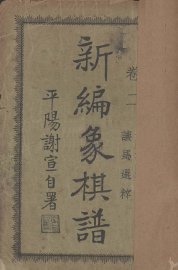 卷二
讓馬選粹
新編象棋譜
平陽謝宣自署